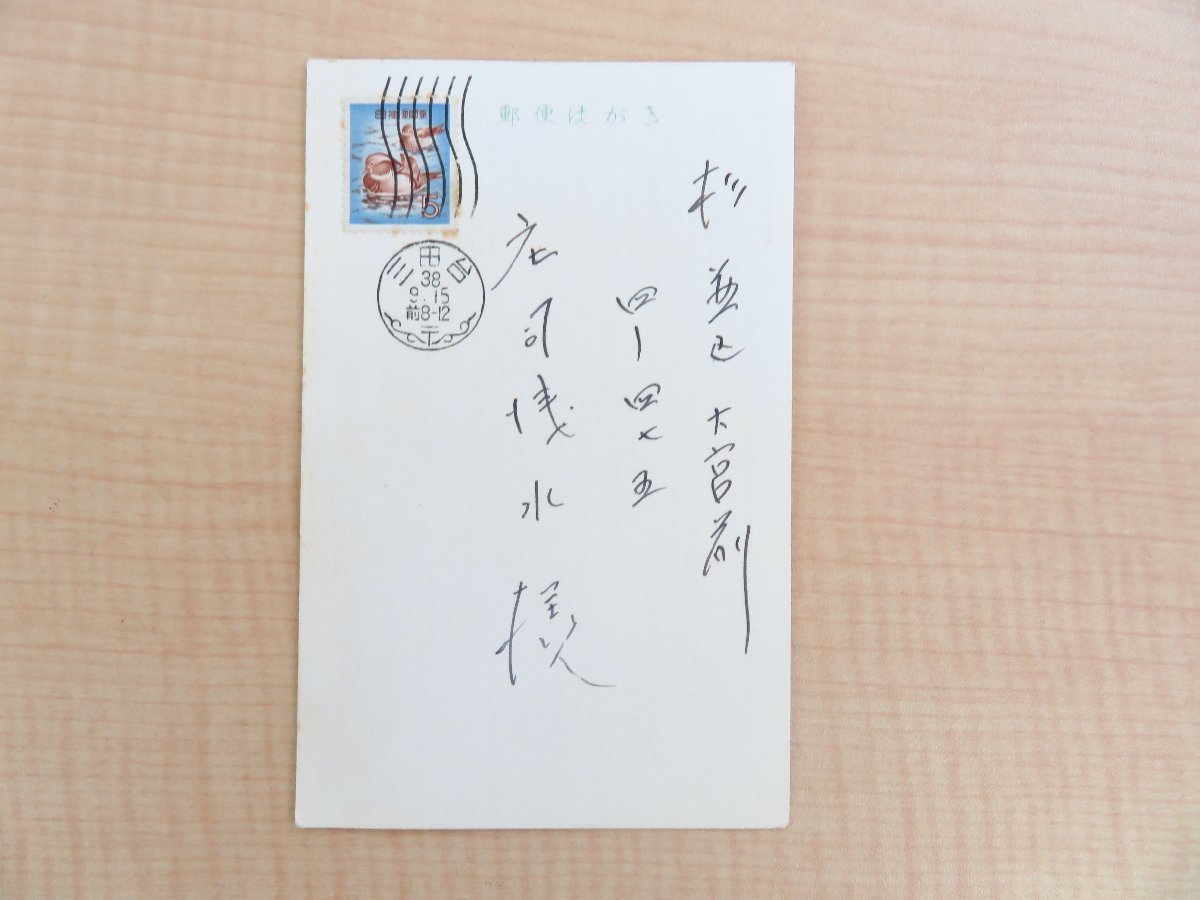 郵便はがき
日本郵便
5
三田台
38
9.15
前8-12
杉並区大宮前
四ー四七五
庄司浅水様